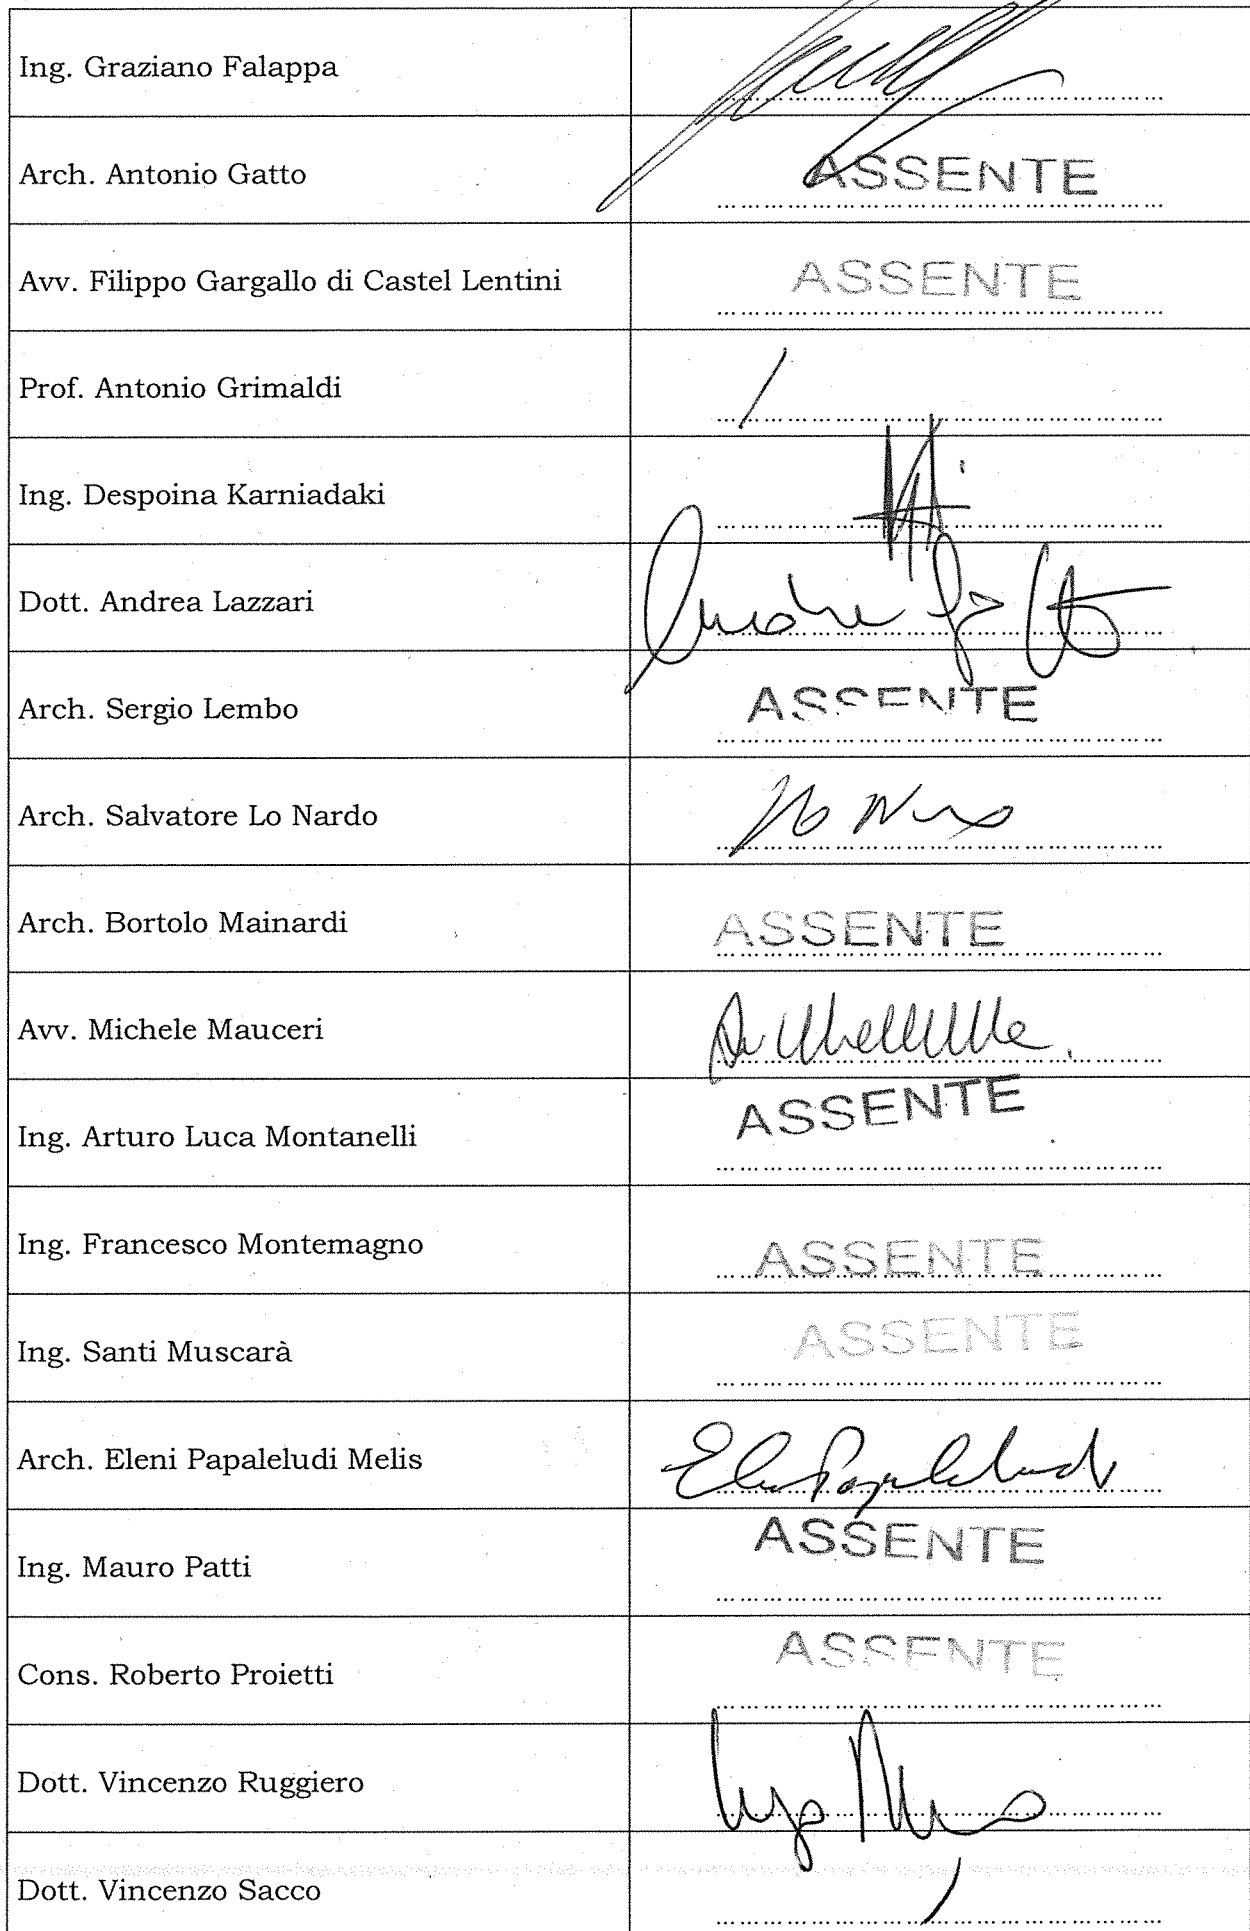 Ing. Graziano Falappa
Arch. Antonio Gatto ASSENTE
Avv. Filippo Gargallo di Castel Lentini ASSENTE
Prof. Antonio Grimaldi
Ing. Despoina Karniadaki
Dott. Andrea Lazzari
Arch. Sergio Lembo ASSENTE
Arch. Salvatore Lo Nardo
Arch. Bortolo Mainardi ASSENTE
Avv. Michele Mauceri
Ing. Arturo Luca Montanelli ASSENTE
Ing. Francesco Montemagno ASSENTE
Ing. Santi Muscarà ASSENTE
Arch. Eleni Papaleludi Melis
Ing. Mauro Patti ASSENTE
Cons. Roberto Proietti ASSENTE
Dott. Vincenzo Ruggiero
Dott. Vincenzo Sacco